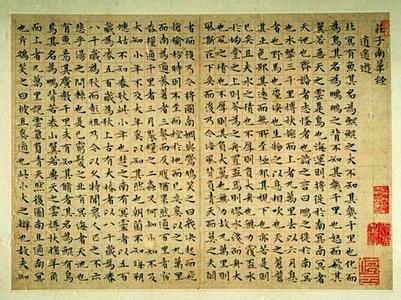 莊子南華經
逍遙遊
北冥有魚其名為鯤鯤之大不知其幾千里也化而
為鳥其名為鵬鵬之背不知其幾千里也怒而飛其
翼若垂天之雲是鳥也海運則將徙於南冥南冥者
天池也齊諧者志怪者也諧之言曰鵬之徙於南冥
也水擊三千里摶扶搖而上者九萬里去以六月息
者也野馬也塵埃也生物之以息相吹也天之蒼蒼
其正色邪其遠而無所至極邪其視下也亦若是則
已矣且夫水之積也不厚則負大舟也無力覆杯水
於坳堂之上則芥為之舟置杯焉則膠水淺而舟大
也風之積也不厚則其負大翼也無力故九萬里則風
斯在下矣而後乃今培風背負青天而莫之夭閼
者而後乃今將圖南蜩與鷽鳩笑之曰我決起而飛
搶榆枋時則不至而控於地而已矣奚以之九萬里
而南為適莽蒼者三飡而反腹猶果然適百里者宿
舂糧適千里者三月聚糧之二蟲又何知小知不及
大知小年不及大年奚以知其然也朝菌不知晦朔
蟪蛄不知春秋此小年也楚之南有冥靈者以五百
歲為春五百歲為秋上古有大椿者以八千歲為春八
千歲為秋而彭祖乃今以久特聞衆人匹之不亦
悲乎湯之問棘也是已窮髮之北有冥海者天池也
有魚焉其廣數千里未有知其脩者其名為鯤有鳥
焉其名為鵬背若太山翼若垂天之雲摶扶搖羊角
而上者九萬里絕雲氣負青天然後圖南且適南冥
也斥鴳笑之曰彼且奚適也此小大之辯也故夫知